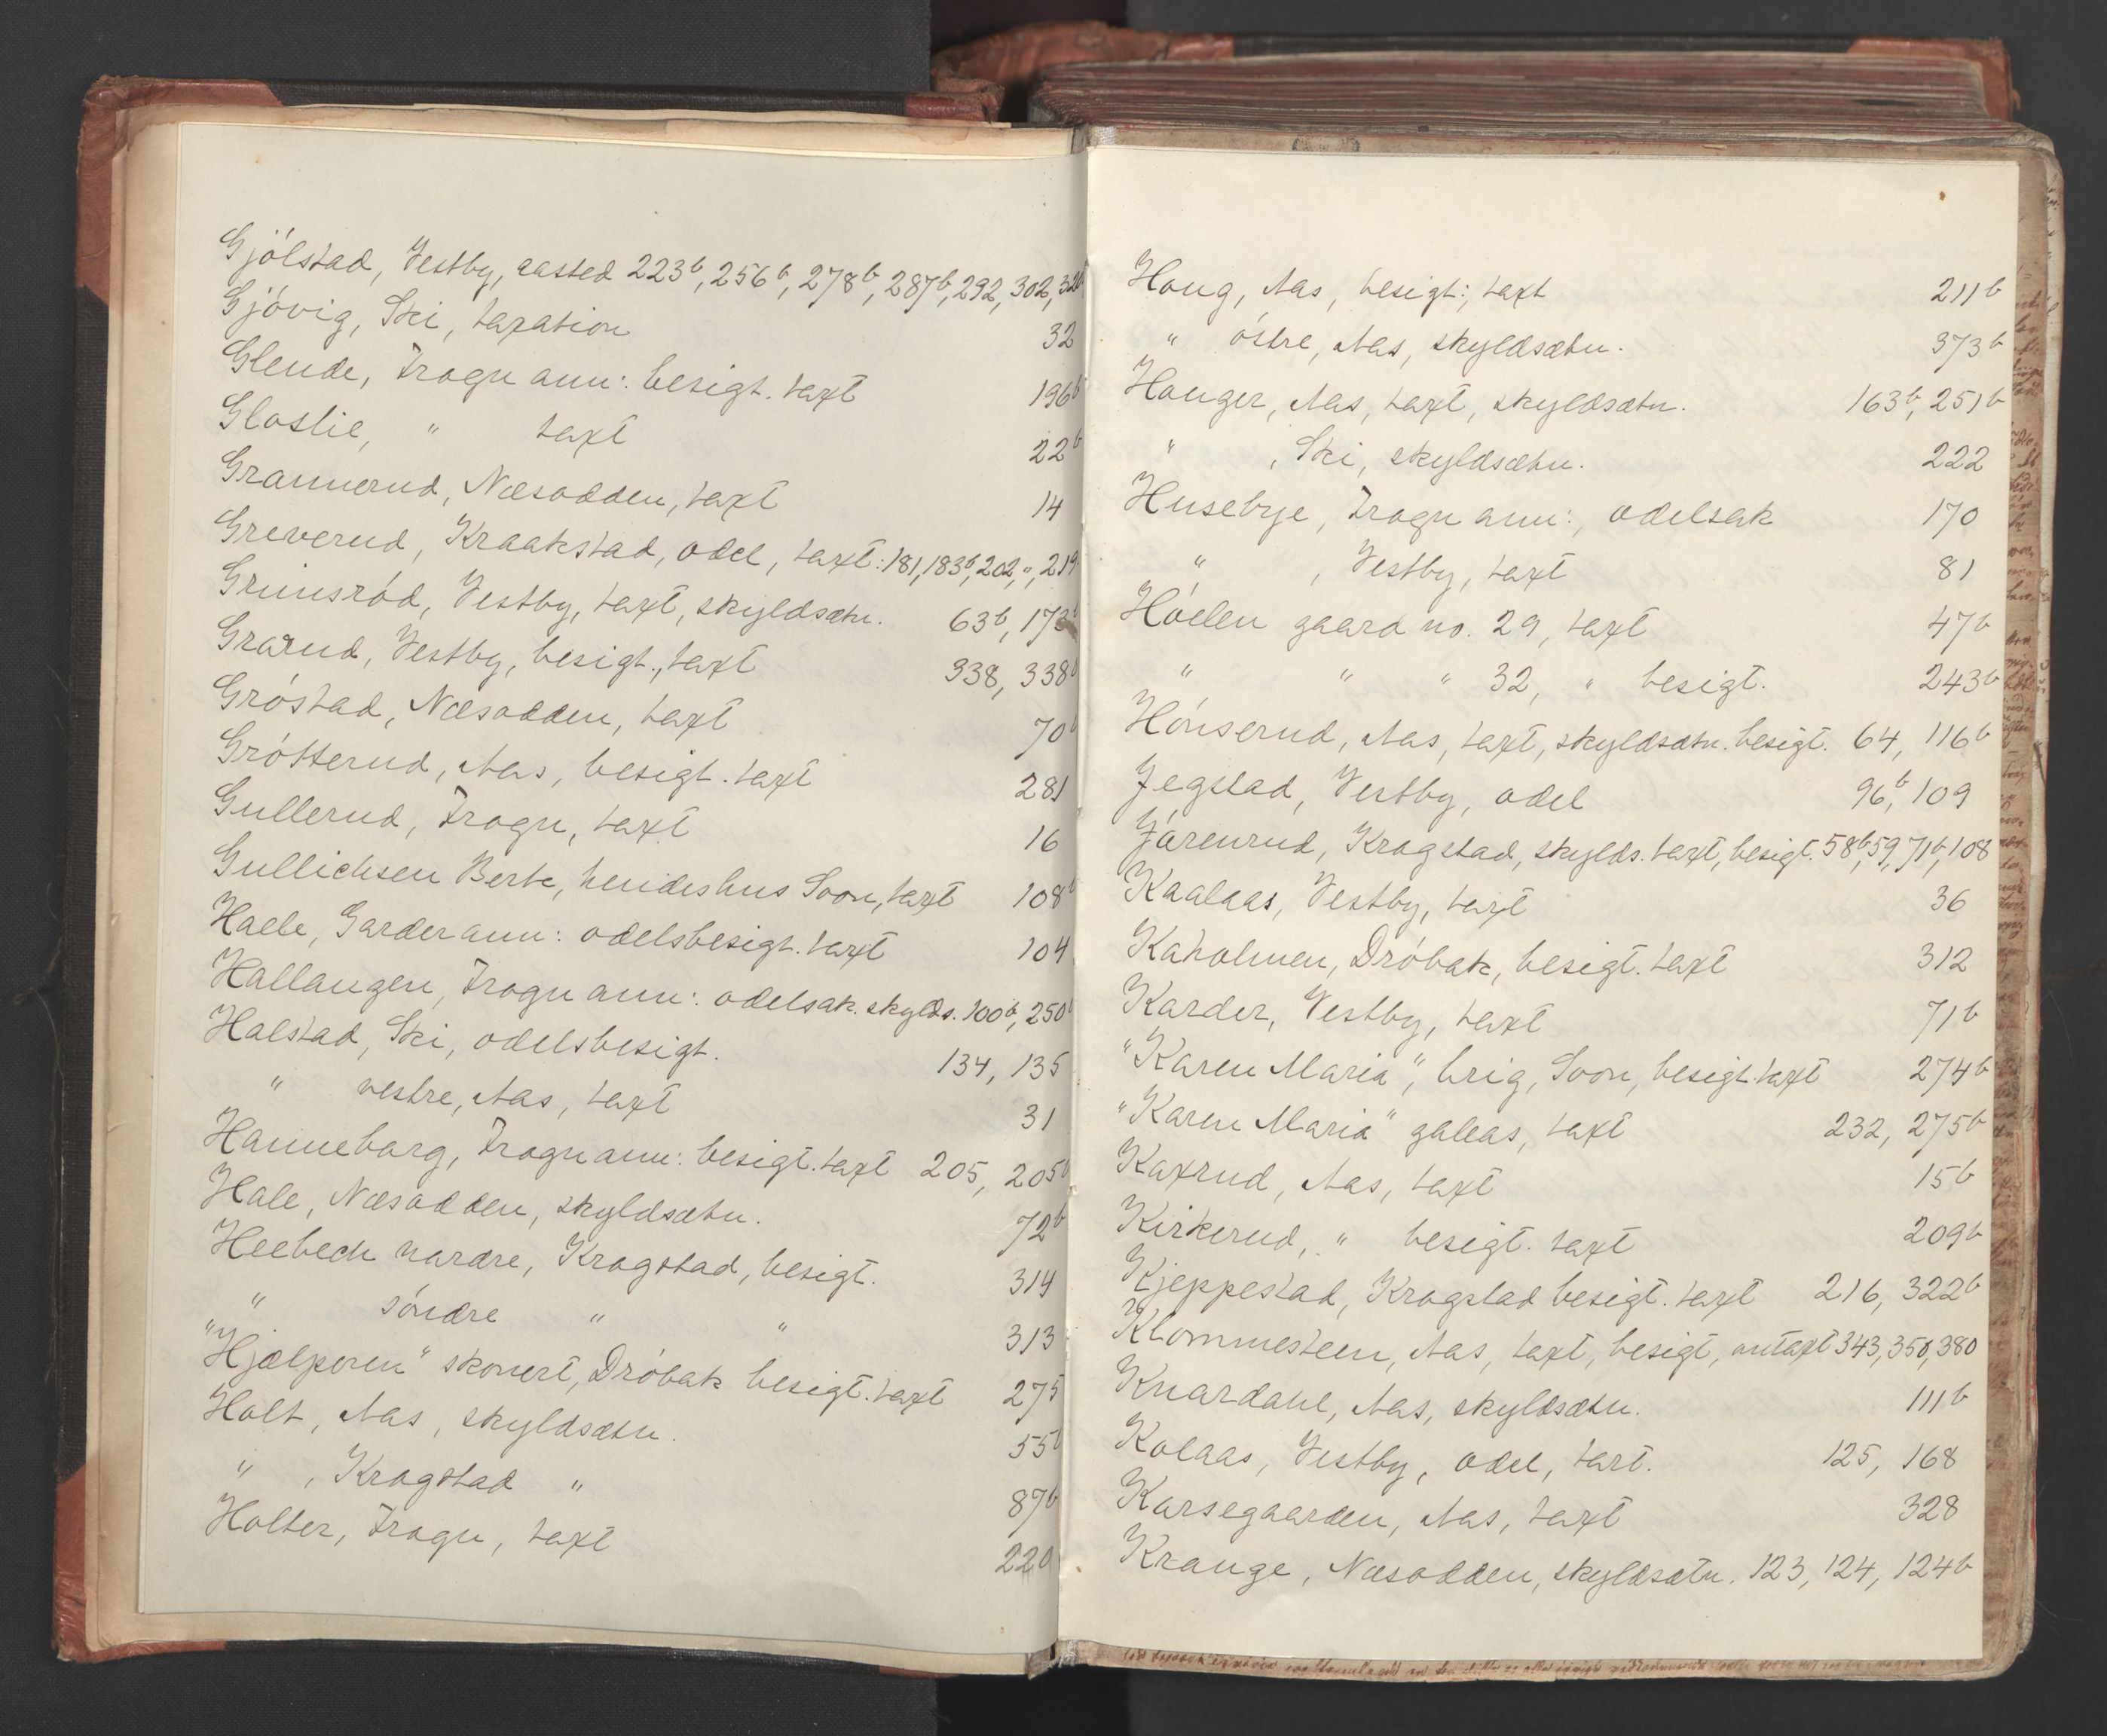 Gjölstad, Vestby, aasted 223b, 256b, 278b, 287b, 292, 302, 320
Gjövig, Ski, taxation 32
Glende, Frogn ann: besigt. taxt 196b
Gloslie, " taxt 22b
Grannerud, Næsodden, taxt 14
Greverud, Kraakstad, odel, taxt: 181, 183b, 202, ", 219
Grimsröd, Vestby, taxt, skyldsætn. 63b, 173b
Grorud, Vestby, besigt., taxt 338, 338b
Gröstad, Næsodden, taxt 70b
Grötterud, Aas, besigt. taxt 281
Gullerud, Frogn, taxt 16
Gullichsen Berte, hendes hus Soon, taxt 108b
Haele, Garder ann: odelsbesigt. taxt 104
Hallangen, Frogn ann: odelsak. skylds. 100b, 250b
Halstad, Ski, odelsbesigt. 134, 135
" vestre, Aas, taxt 31
Hanneborg, Frogn ann: besigt. taxt 205, 205b
Hale, Næsodden, skyldsætn. 72b
Heebech nordre, Krogstad, besigt. 314
" söndre " " 313
"Hjælperen" skonert, Dröbak besigt. taxt 275
Holt, Aas, skyldsætn. 55b
" , Krogstad " 87b
Holter, Frogn, taxt 220
Houg, Aas, besigt:, taxt 211b
" östre, Aas, skyldsætn. 373b
Houger, Aas, taxt, skyldsætn. 163b, 251b
" , Ski, skyldsætn. 222
Husebye, Frogn ann:, odelsak 170
" , Vestby, taxt 81
Höelen gaard no. 29, taxt 47b
" " " 32, " besigt. 243b
Hönserud, Aas, taxt, skyldsætn. besigt. 64, 116b
Jegstad, Vestby, odel 96b, 109
Jörenrud, Krogstad, skylds. taxt, besigt. 58b, 59, 71b, 108
Kaalaas, Vestby, taxt 36
Kaholmen, Dröbak, besigt. taxt 312
Karder, Vestby, taxt 71b
"Karen Maria", brig, Soon, besigt. taxt 274b
"Karen Maria" galeas, taxt 232, 275b
Kaxrud, Aas, taxt 15b
Kirkerud, " besigt. taxt 209b
Kjeppestad, Krogstad besigt. taxt 216, 322b
Klommesteen, Aas, taxt, besigt, omtaxt 343, 350, 380
Knardahl, Aas, skyldsætn. 111b
Kolaas, Vestby, odel, taxt. 125, 168
Korsegaarden, Aas, taxt 328
Krange, Næsodden, skyldsætn. 123, 124, 124b